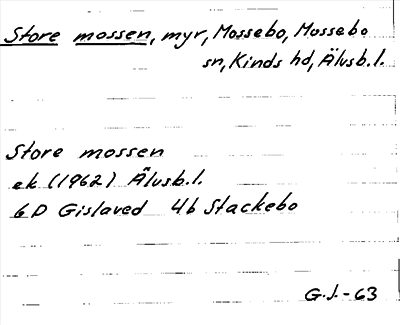 Store mossen, myr, Mossebo, Mossebo
sn, Kinds hd, Älvsb.l.
Store mossen
ek (1962) Älvsb.l.
6D Gislaved 4b Stackebo
G.J.-63